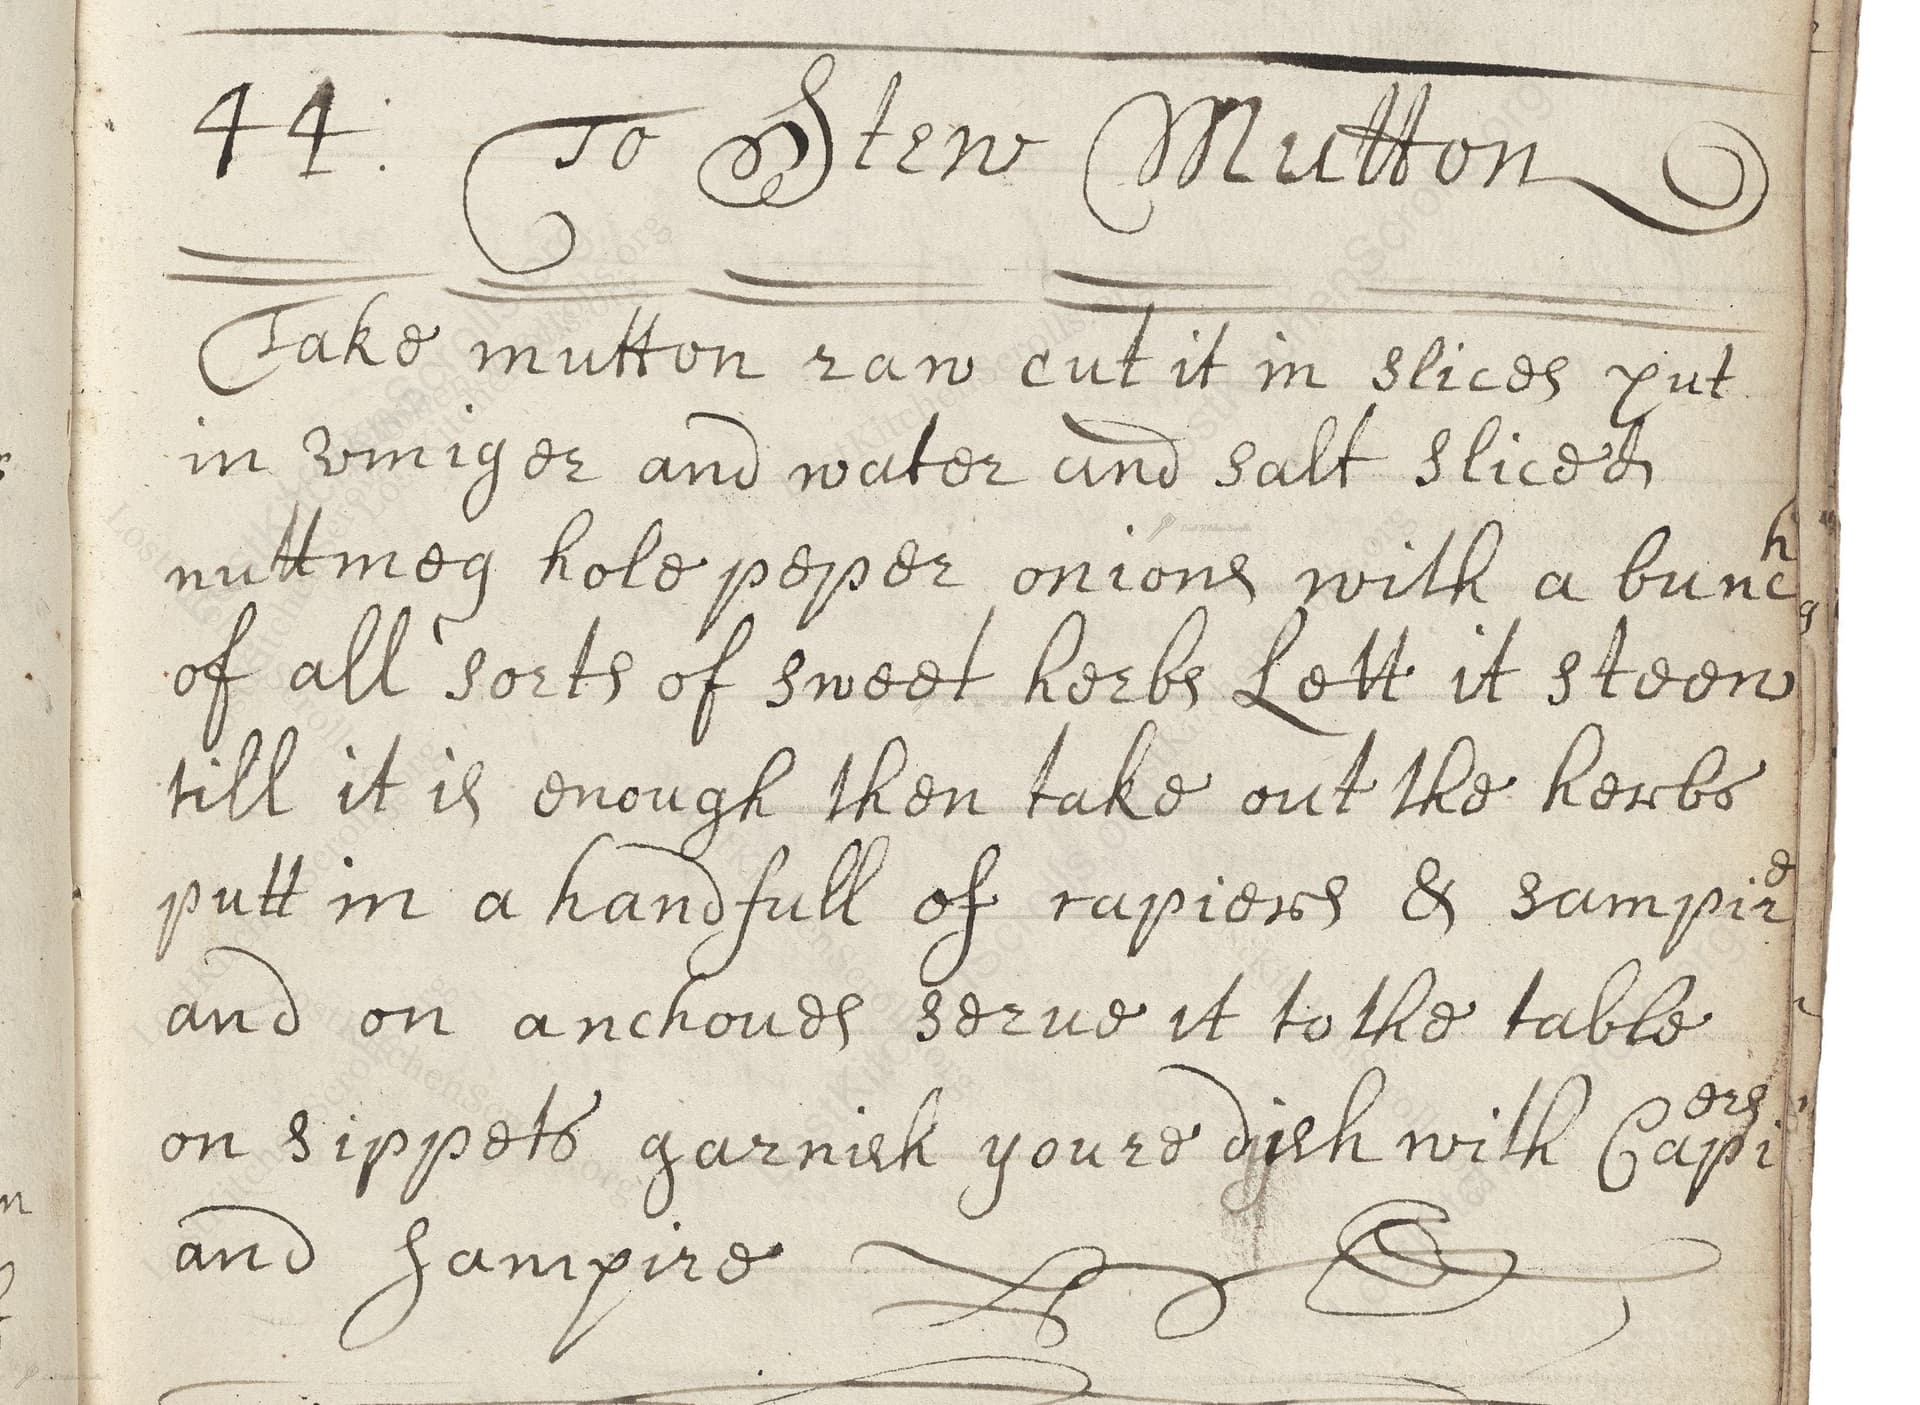 44. To Stew Mutton
Take mutton raw cut it in slices put
in viniger and water and salt sliced
nuttmeg hole peper onions with a bunch
of all sorts of sweet herbs Lett it steew
till it is enough then take out the herbs
putt in a handfull of capiers & sampire
and on anchoues serue it to the table
on sippets garnish youre dish with Capiers
and Sampire